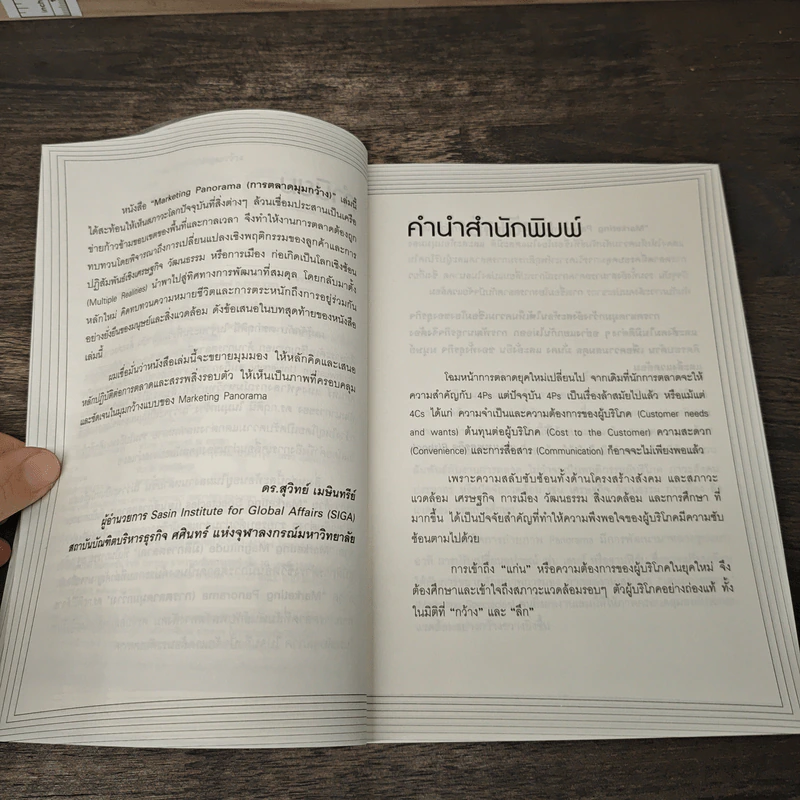 หนังสือ "Marketing Panorama (การตลาดมุมกว้าง)" เล่มนี้
ได้สะท้อนให้เห็นสภาวะโลกปัจจุบันที่สิ่งต่างๆ ล้วนเชื่อมประสานเป็นเครือ
ข่ายก้าวข้ามขอบเขตของพื้นที่และกาลเวลา จึงทำให้งานการตลาดต้องถูก
ทบทวนโดยพิจารณาถึงการเปลี่ยนแปลงเชิงพฤติกรรมของลูกค้าและการ
ปฏิสัมพันธ์เชิงเศรษฐกิจ วัฒนธรรม หรือการเมือง ก่อเกิดเป็นโลกเชิงซ้อน
(Multiple Realities) นำพาไปสู่ทิศทางการพัฒนาที่สมดุล โดยกลับมาตั้ง
หลักใหม่ คิดทบทวนความหมายชีวิตและการตระหนักถึงการอยู่ร่วมกัน
อย่างยั่งยืนของมนุษย์และสิ่งแวดล้อม ดังข้อเสนอในบทสุดท้ายของหนังสือ
เล่มนี้
ผมเชื่อมั่นว่าหนังสือเล่มนี้จะขยายมุมมอง ให้หลักคิดและเสนอ
หลักปฏิบัติต่อการตลาดและสรรพสิ่งรอบตัว ให้เห็นเป็นภาพที่ครอบคลุม
และชัดเจนในมุมกว้างแบบของ Marketing Panorama
ดร.สุวิทย์ เมษินทรีย์
ผู้อำนวยการ Sasin Institute for Global Affairs (SIGA)
สถาบันบัณฑิตบริหารธุรกิจ ศศินทร์ แห่งจุฬาลงกรณ์มหาวิทยาลัย
คำนำสำนักพิมพ์
โฉมหน้าการตลาดยุคใหม่เปลี่ยนไป จากเดิมที่นักการตลาดจะให้
ความสำคัญกับ 4Ps แต่ปัจจุบัน 4Ps เป็นเรื่องล้าสมัยไปแล้ว หรือแม้แต่
4Cs ได้แก่ ความจำเป็นและความต้องการของผู้บริโภค (Customer needs
and wants) ต้นทุนต่อผู้บริโภค (Cost to the Customer) ความสะดวก
(Convenience) และการสื่อสาร (Communication) ก็อาจจะไม่เพียงพอแล้ว
เพราะความสลับซับซ้อนทั้งด้านโครงสร้างสังคม และสภาวะ
แวดล้อม เศรษฐกิจ การเมือง วัฒนธรรม สิ่งแวดล้อม และการศึกษา ที่
มากขึ้น ได้เป็นปัจจัยสำคัญที่ทำให้ความพึงพอใจของผู้บริโภคมีความซับ
ซ้อนตามไปด้วย
การเข้าถึง "แก่น" หรือความต้องการของผู้บริโภคในยุคใหม่ จึง
ต้องศึกษาและเข้าใจถึงสภาวะแวดล้อมรอบๆ ตัวผู้บริโภคอย่างถ่องแท้ ทั้ง
ในมิติที่ "กว้าง" และ "ลึก"